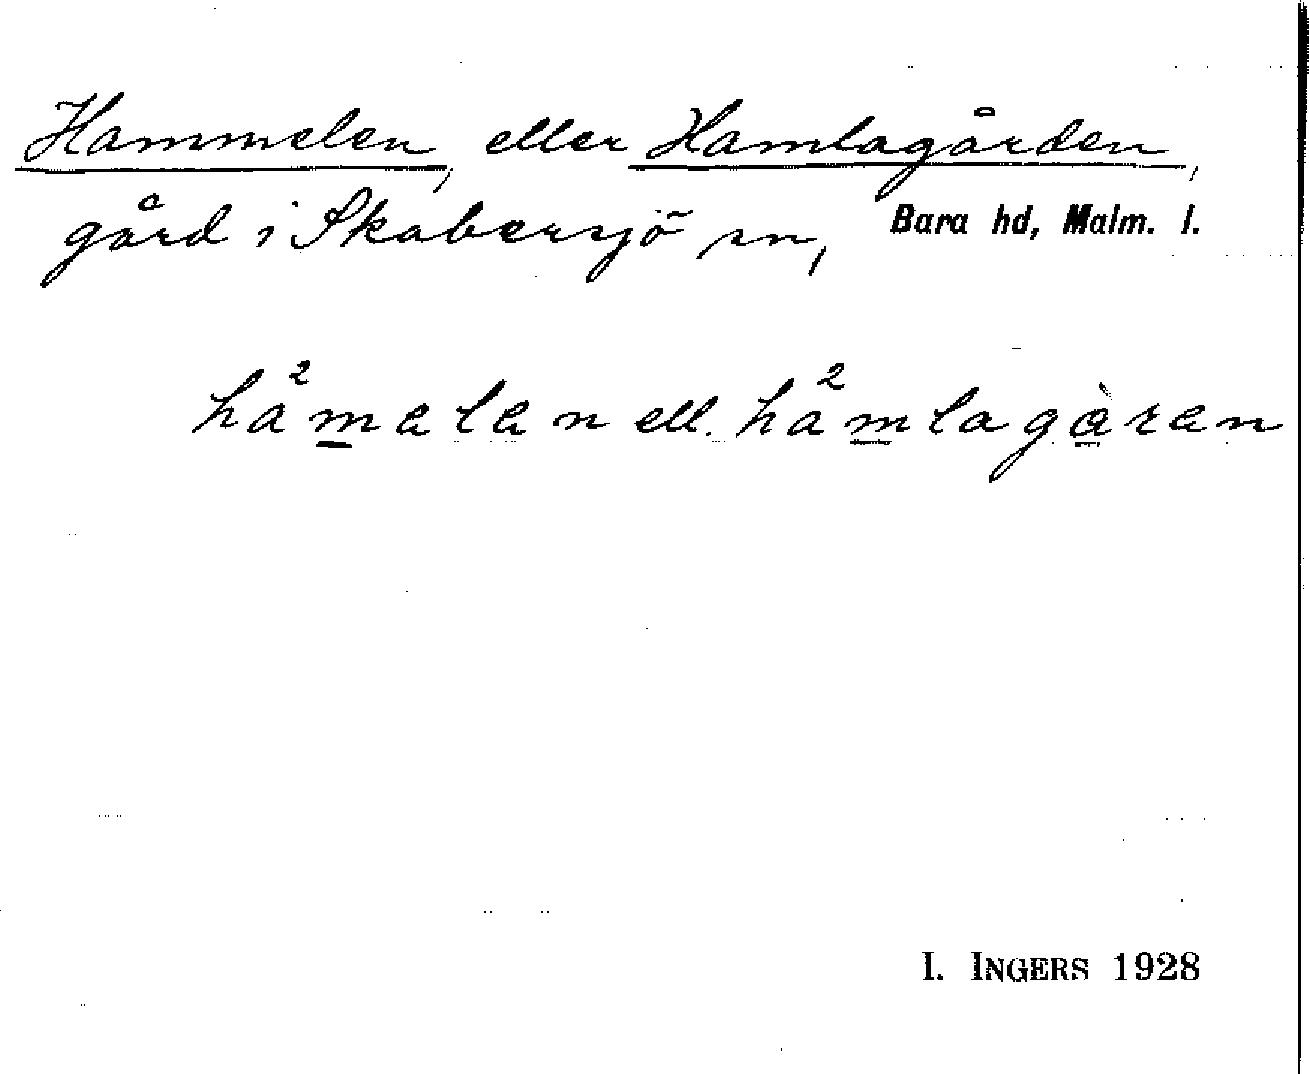 Hammelen, eller Hamlagården,
gård i Skabersjö sn, Bara hd, Malm. l.
ha²melen ell. ha²mlagàren
I. INGERS 1928